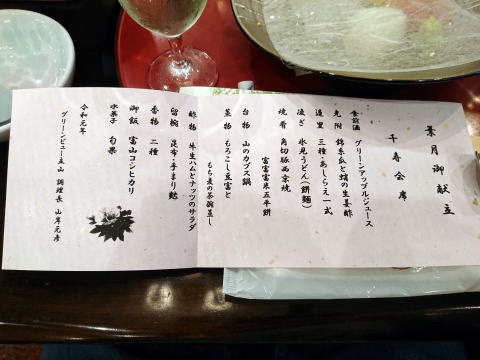 葉月御献立
千寿会席
食前酒 グリーンアップルジュース
先附 錦糸瓜と蛸の生姜酢
造里 三種・あしらえ一式
凌ぎ 氷見うどん(餅麺)
焼肴 角切豚西京焼
富富富米五平餅
台物 山のカブス鍋
蒸物 もろこし豆富と
もち麦の茶碗蒸し
酢物 牛生ハムとナッツのサラダ
留椀 昆布・手まり麩
香物 二種
御飯 富山コシヒカリ
水菓子 旬果
令和元年
グリーンビュー立山 調理長 山岸元彦